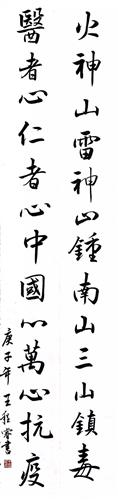 火神山雷神山鍾南山三山鎮毒
醫者心仁者心中國心萬心抗疫
庚子年王程睿書